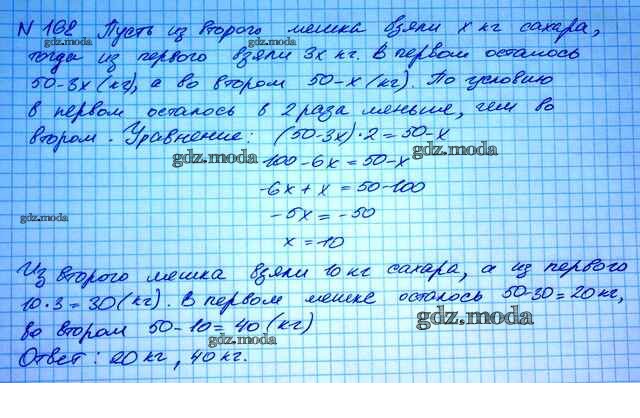 № 168 Пусть из второго мешка взяли x кг сахара,
gdz.moda
тогда из первого взяли 3x кг. В первом осталось
gdz.moda
50-3x (кг), а во втором 50-x (кг). По условию
в первом осталось в 2 раза меньше, чем во
втором. Уравнение: (50-3x)·2=50-x
gdz.moda
100-6x=50-x
gdz.moda
-6x+x=50-100
gdz.moda
-5x=-50
gdz.moda
x=10
Из второго мешка взяли 10 кг сахара, а из первого
10·3=30 (кг). В первом мешке осталось 50-30=20 кг,
gdz.moda
во втором 50-10=40 (кг)
gdz.moda
gdz.moda
Ответ: 20 кг, 40 кг.